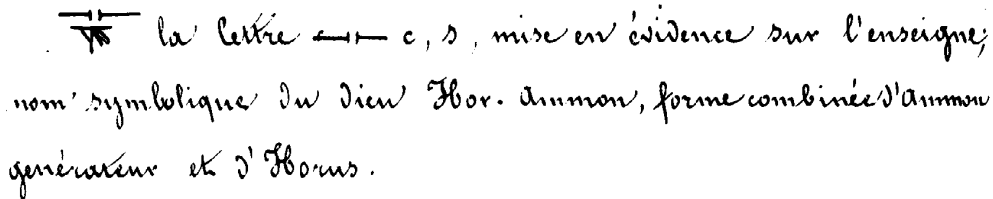 la lettre c, s, mise en évidence sur l'enseigne;
nom symbolique du dieu Hor-Ammon, forme combinée d'Ammon
générateur et d'Horus.